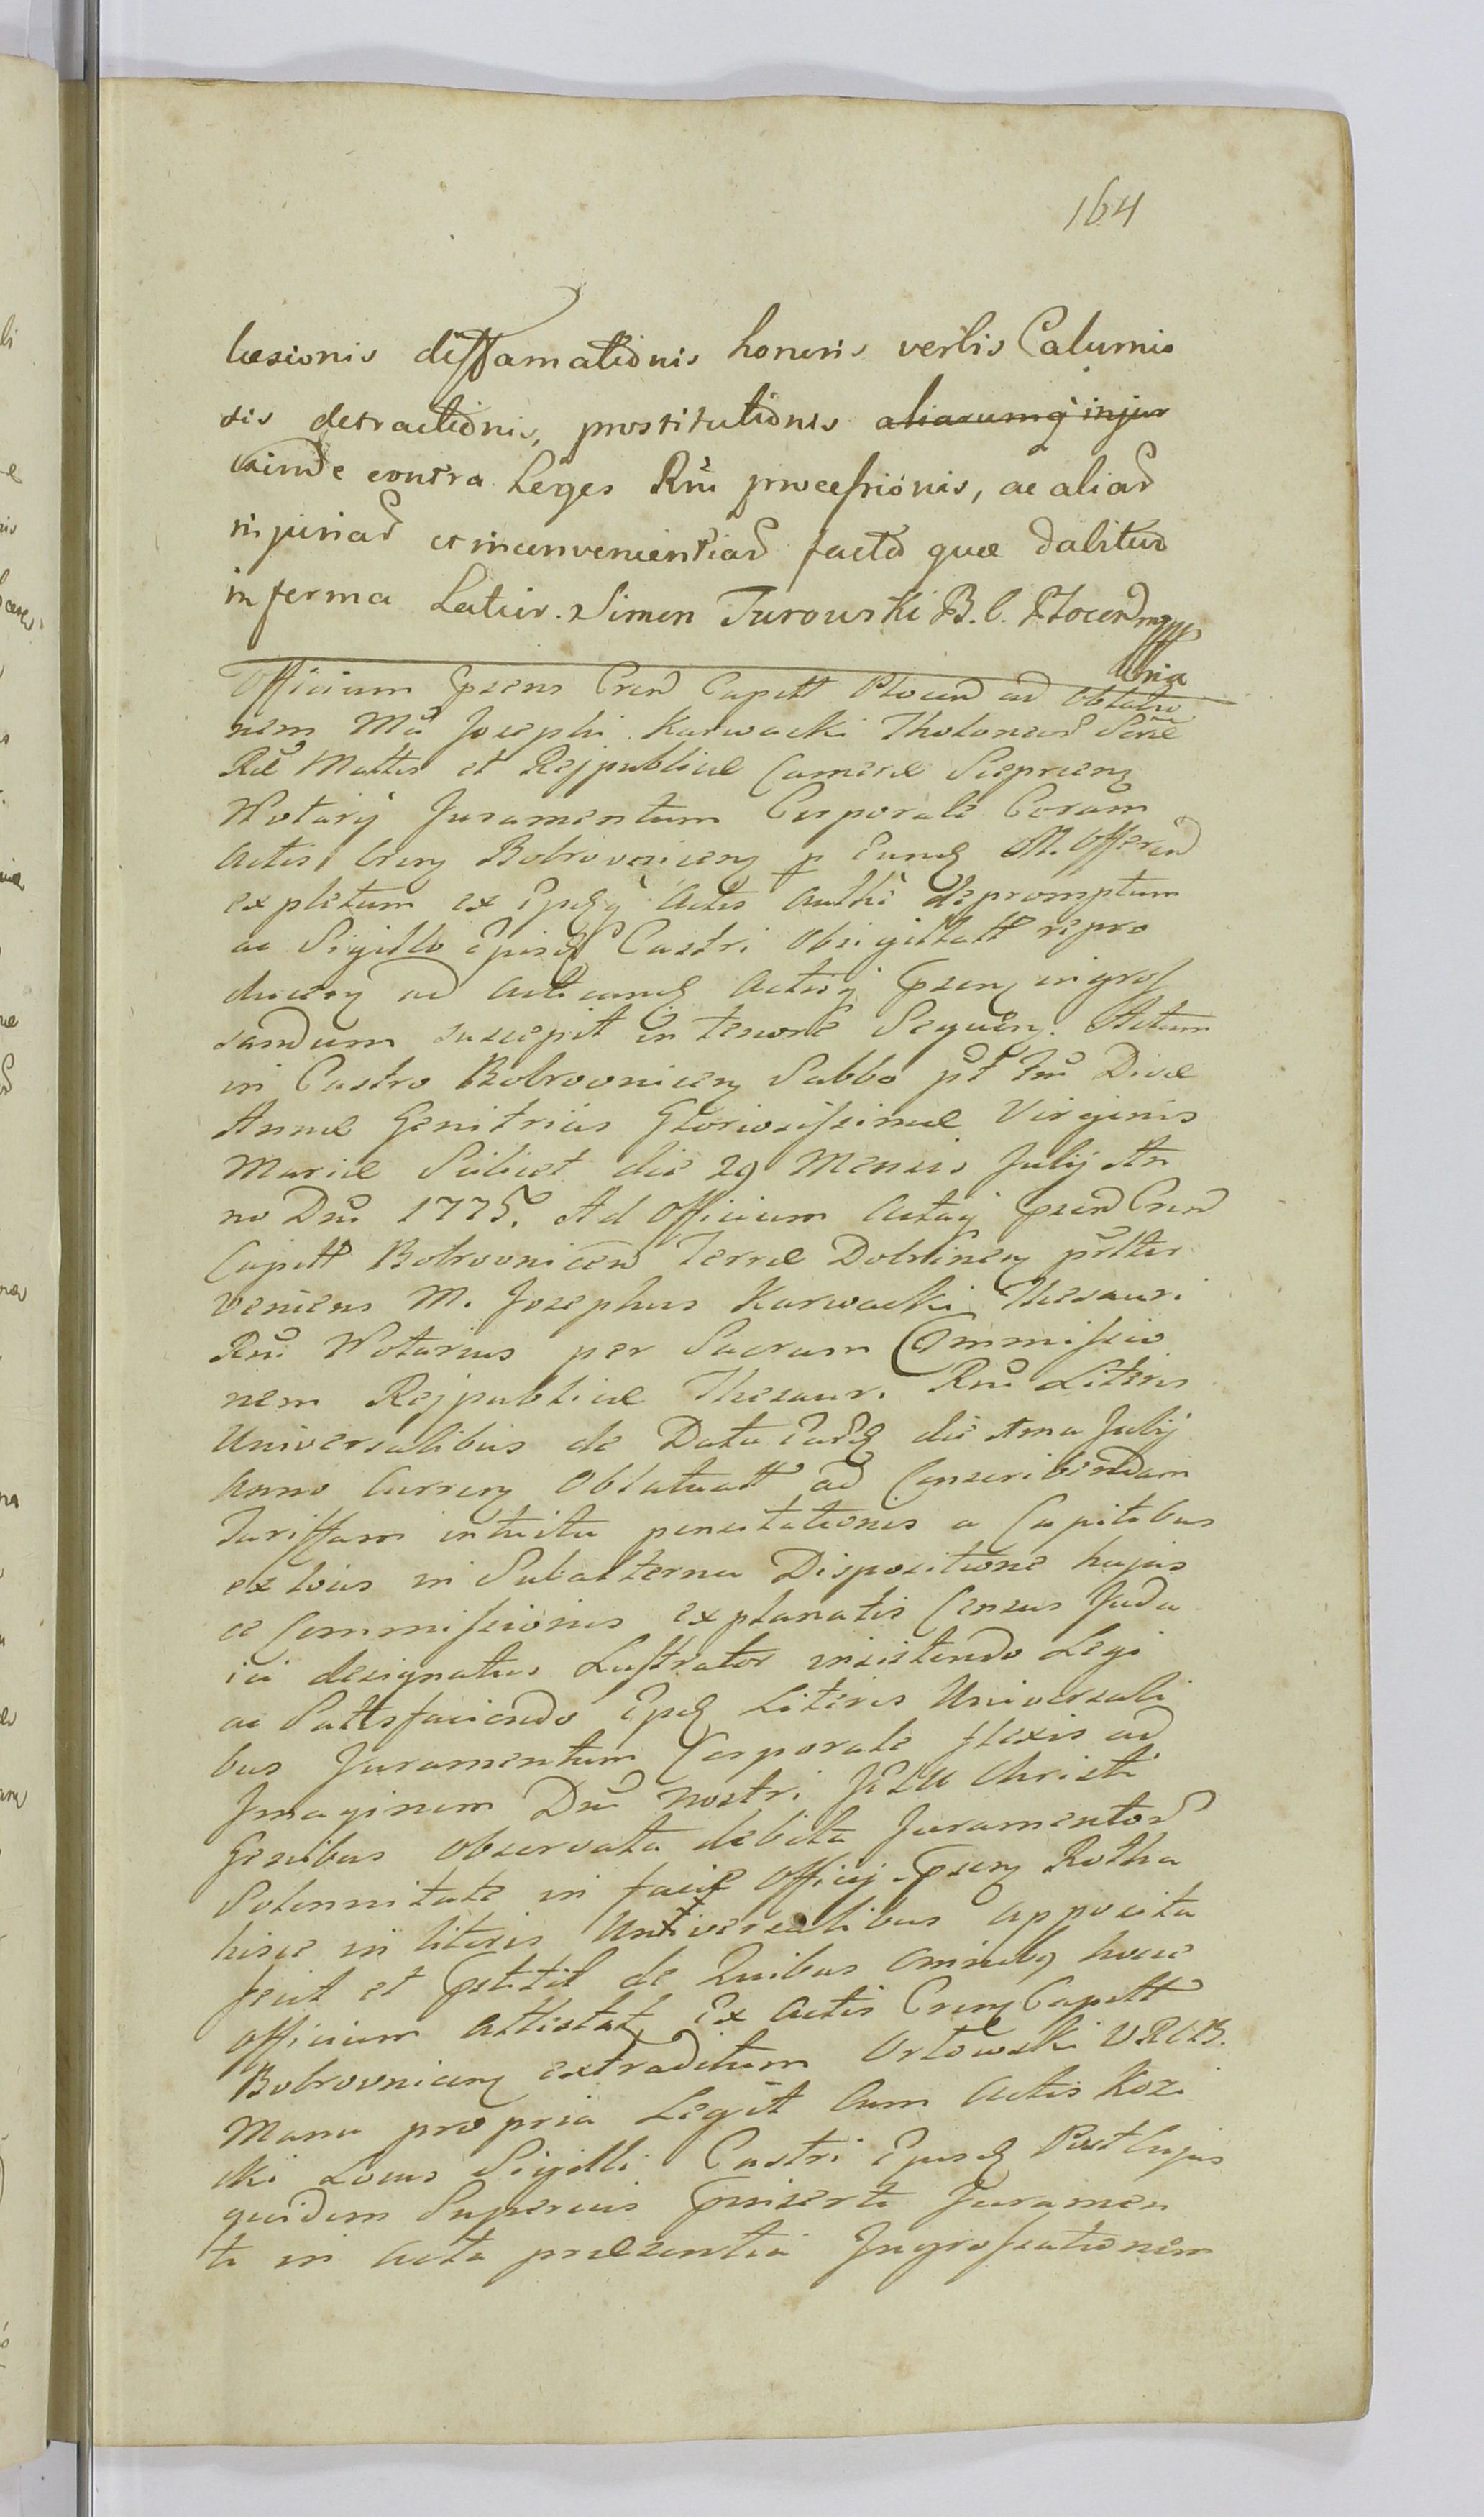 164
læsionis diffamationis honoris verbis Calumnio
sis detractionis, prostitutionis aliarumq injur
exinde contra Leges Rni processionis, ac aliar
injuriar et inconvenientiar facto quæ dabitur
in forma Latior. Simon Turowski B. C. Plocen mpp
Officium Præsens Cren Capitt Plocen ad Oblatio
nem Mci Josephi Karwacki Theloneor Sacræ
Ræ Mattis et Rejpublicæ Cameræ Sieprcens
Notarij Juramentum Corporale Coram
Actis Cren Bobrovnicen p Eund M. Offeren
expletum ex Ejusdq Actis Authe depromptum
ac Sigillo Ejusd Castri Obsigillatt repro
ducens ad Acticand Actisq præsen ingros
sandum suscepit in tenore Sequen. Actum
in Castro Bobrovnicen Sabbo pt fm Divæ
Annæ Genitricis Gloriosissimæ Virginis
Mariæ Scilicet die 29 Mensis Julij An
no Dni 1775. Ad Officium Actaq præsen Cren
Capitt Bobrovnicen Terræ Dobrinen prlter
veniens M. Josephus Karwacki Thesauri
Rni Notarius per Sacram Commissio
nem Rejpublicæ Thesaur. Rni Literis
Universalibus de Data Eard die 1ma Julij
Anno Curren Oblatuatt ad Conscribendam
Tariffam intuitu pensitationis a Capitibus
ex loius in Subalterna Dispositione hujus
ce Commissionis explanatis Census Juda
ici designatus Lustrator insistendo Legi
ac Sattsfaciendo Epd Literis Universali
bus Juramentum Corporale flexis ad
Imaginem Dni nostri Jesu Christi
Genibus observata debita Juramentor
Solennitate in facie Officij præsen Rotha
hisce in literis Universalibus apposita
fecit et præstitit de Quibus omnibq hocce
officium attestat. Ex Actis Cren Capitt
Bobrovnicen extraditum Orłowski V R C B.
Manu propria Legit Cum Actis Kozi
cki Locus Sigilli Castri Ejusd Post Cujus
quidem Superius præinserti Juramen
ti in Acta præsentia Ingrossationem